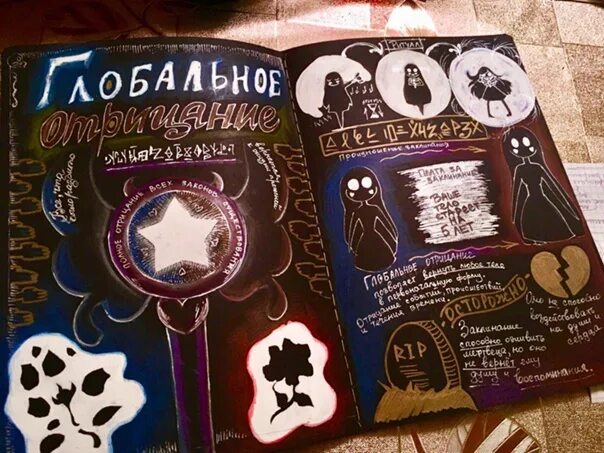 Глобальное
отрицание
Полное отрицание всех законов существования
Ритуал
Произношение заклинания
Плата за
заклинание
Ваше
тело
стареет
на
5 лет
Глобальное отрицание
позволяет вернуть любое тело
в первоначальную форму.
Отрицание событий, происшествий
и течения времени.
Осторожно
Оно не способно
воздействовать
на души и
сердца
RIP
Заклинание
способно оживить
мертвеца, но оно
не вернёт ему
душу и воспоминания.